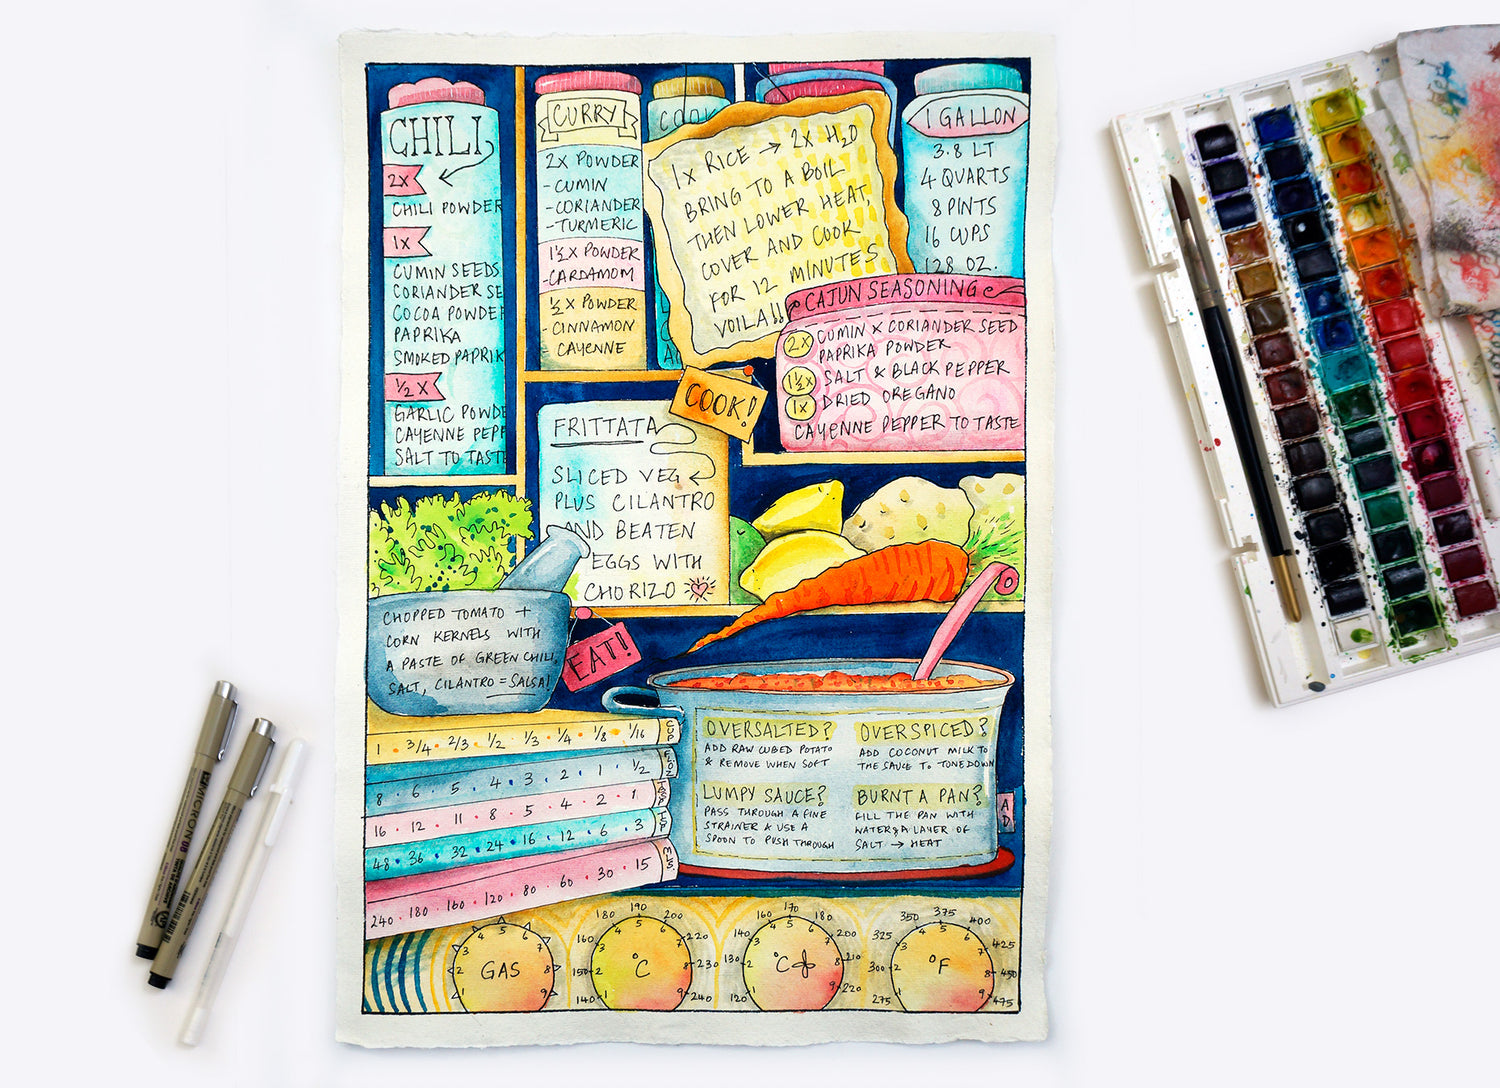 CHILI
2X
CHILI POWDER
1X
CUMIN SEEDS
CORIANDER SE
COCOA POWDE
PAPRIKA
SMOKED PAPRIK
1/2 X
GARLIC POWDE
CAYENNE PEPP
SALT TO TAST
CURRY
2X POWDER
-CUMIN
-CORIANDER
-TURMERIC
1½X POWDER
-CARDAMOM
½X POWDER
-CINNAMON
CAYENNE
COOK
1X RICE → 2X H2O
BRING TO A BOIL
THEN LOWER HEAT,
COVER AND COOK
FOR 12 MINUTES
VOILA!!
1 GALLON
3.8 LT
4 QUARTS
8 PINTS
16 CUPS
128 OZ.
CAJUN SEASONING
2X CUMIN X CORIANDER SEED
PAPRIKA POWDER
1½X SALT & BLACK PEPPER
1X DRIED OREGANO
CAYENNE PEPPER TO TASTE
COOK!
FRITTATA
SLICED VEG
PLUS CILANTRO
AND BEATEN
EGGS WITH
CHORIZO
CHOPPED TOMATO +
CORN KERNELS WITH
A PASTE OF GREEN CHILI,
SALT, CILANTRO = SALSA!
EAT!
1 · 3/4 · 2/3 · 1/2 · 1/3 · 1/4 · 1/8 · 1/16 CUP
8 · 6 · 5 · 4 · 3 · 2 · 1 · 1/2 FL OZ
16 · 12 · 11 · 8 · 5 · 4 · 2 · 1 TBSP
48 · 36 · 32 · 24 · 16 · 12 · 6 · 3 TSP
240 · 180 · 160 · 120 · 80 · 60 · 30 · 15 MLS
OVERSALTED?
ADD RAW CUBED POTATO
& REMOVE WHEN SOFT
OVERSPICED?
ADD COCONUT MILK TO
THE SAUCE TO TONE DOWN
LUMPY SAUCE?
PASS THROUGH A FINE
STRAINER & USE A
SPOON TO PUSH THROUGH
BURNT A PAN?
FILL THE PAN WITH
WATER & A LAYER OF
SALT → HEAT
A
D
GAS
1 2 3 4 5 6 7 8 9
°C
1 2 3 4 5 6 7 8 9
140 150 160 180 190 200 220 230 240
°C
1 2 3 4 5 6 7 8 9
120 130 140 160 170 180 200 210 220
°F
1 2 3 4 5 6 7 8 9
275 300 325 350 375 400 425 450 475
MICRON 08